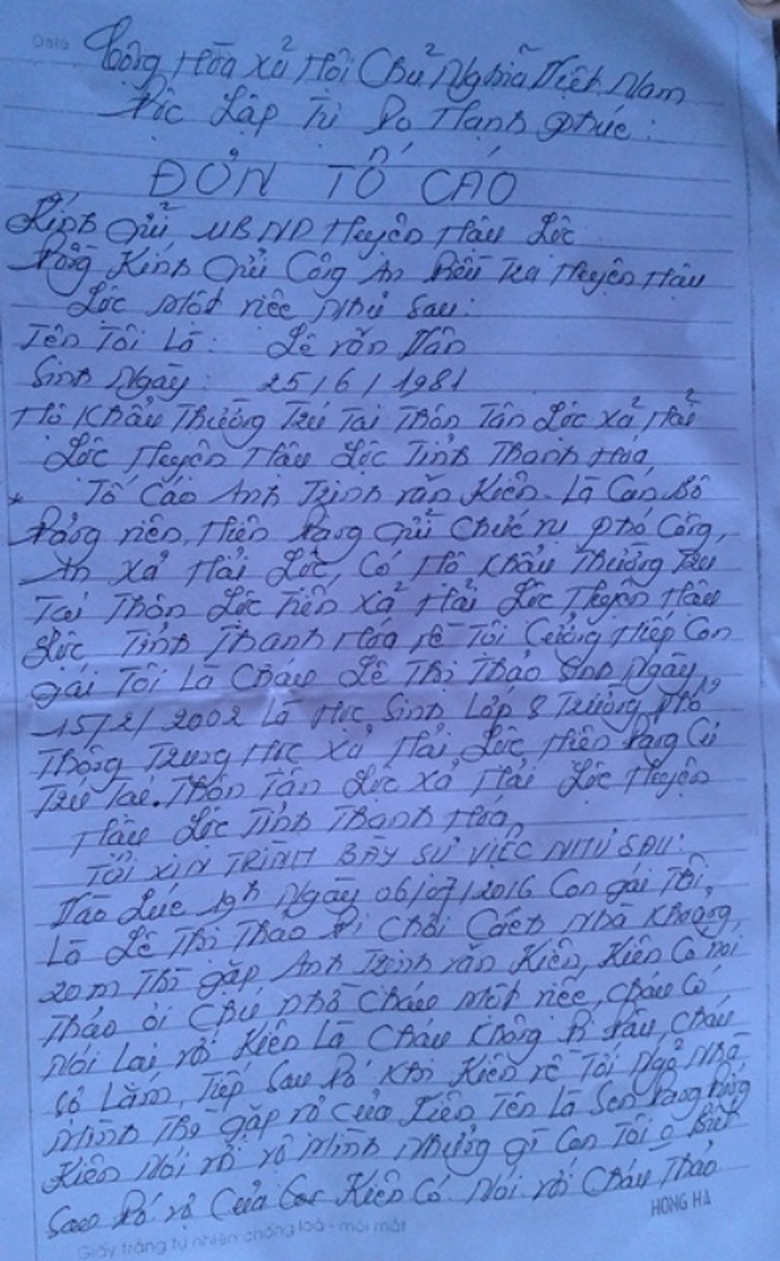 Date
Cộng Hòa Xã Hội Chủ Nghĩa Việt Nam
Độc Lập Tự Do Hạnh Phúc:
ĐƠN TỐ CÁO
Kính Gửi UBND Huyện Hậu Lộc
Đồng Kính Gửi Công An Điều Tra Huyện Hậu
Lộc Một việc Như Sau:
Tên Tôi Là: Lê văn Vân
Sinh Ngày: 25/6/1981
Hộ Khẩu Thường Trú Tại Thôn Tân Lộc xã Hải
Lộc Huyện Hậu Lộc Tỉnh Thanh Hóa
* Tố Cáo Anh Trịnh văn Kiên - Là Cán Bộ
Đảng viên, Hiện Đang Giữ Chức vụ phó Công,
An xã Hải Lộc, Có Hộ Khẩu Thường Trú
Tại Thôn Lộc Tiên xã Hải Lộc Huyện Hậu
Lộc Tỉnh Thanh Hóa về Tội Cưỡng Hiếp Con
gái Tôi Là Cháu Lê Thị Thảo Sinh Ngày
15/2/2002 Là Học Sinh Lớp 8 Trường phổ
Thông Trung Học xã Hải Lộc Hiện Đang Cư
Trú Tại. Thôn Tân Lộc xã Hải Lộc Huyện
Hậu Lộc Tỉnh Thanh Hóa,
TÔI XIN TRÌNH BÀY SỰ VIỆC NHƯ SAU:
Vào Lúc 19h Ngày 06/07/2016 Con gái Tôi,
Là Lê Thị Thảo Đi Chơi Cách Nhà Khoảng
20m Thì gặp Anh Trịnh văn Kiên, Kiên Có nói
Thảo ơi Chú nhờ Cháu Một việc, Cháu Có
Nói Lại với Kiên Là Cháu Không Đi Đâu, Cháu
Sợ Lắm, Tiếp Sau Đó Khi Kiên về Tới Ngõ Nhà
Mình Thì gặp vợ Của Kiên Tên Là Sen Đang Đứng
Kiên Nói với vợ Mình Những gì Con Tôi o Biết
Sau Đó vợ Của Kiên Có Nói với Cháu Thảo
HONG HA
Giấy trắng tự nhiên chống loá - mỏi mắt